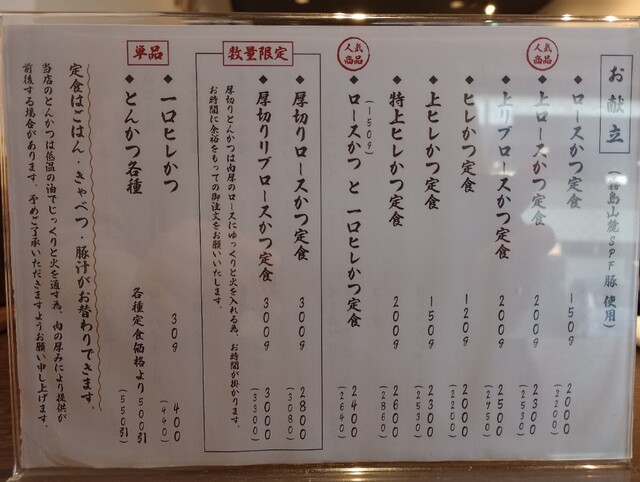 お献立（霧島山麓SPF豚使用）
◆ロースかつ定食 150g 2000（2200）
人気商品
◆上ロースかつ定食 200g 2300（2530）
◆上リブロースかつ定食 200g 2500（2750）
◆ヒレかつ定食 120g 2000（2200）
◆上ヒレかつ定食 150g 2300（2530）
◆特上ヒレかつ定食 200g 2600（2860）
人気商品
◆ロースかつ と 一口ヒレかつ定食 2400（2640）
（150g）
数量限定
◆厚切りロースかつ定食 300g 2800（3080）
◆厚切りリブロースかつ定食 300g 3000（3300）
厚切りとんかつは肉厚のロースにゆっくりと火を入れる為、お時間が掛かります。
お時間に余裕をもっての御注文をお願いいたします。
単品
◆一口ヒレかつ 30g 400（440）
◆とんかつ各種 各種定食価格より500引（550引）
定食はごはん・きゃべつ・豚汁がお替わりできます。
当店のとんかつは低温の油でじっくりと火を通す為、肉の厚みにより提供が
前後する場合があります。予めご了承いただきますようお願い申し上げます。